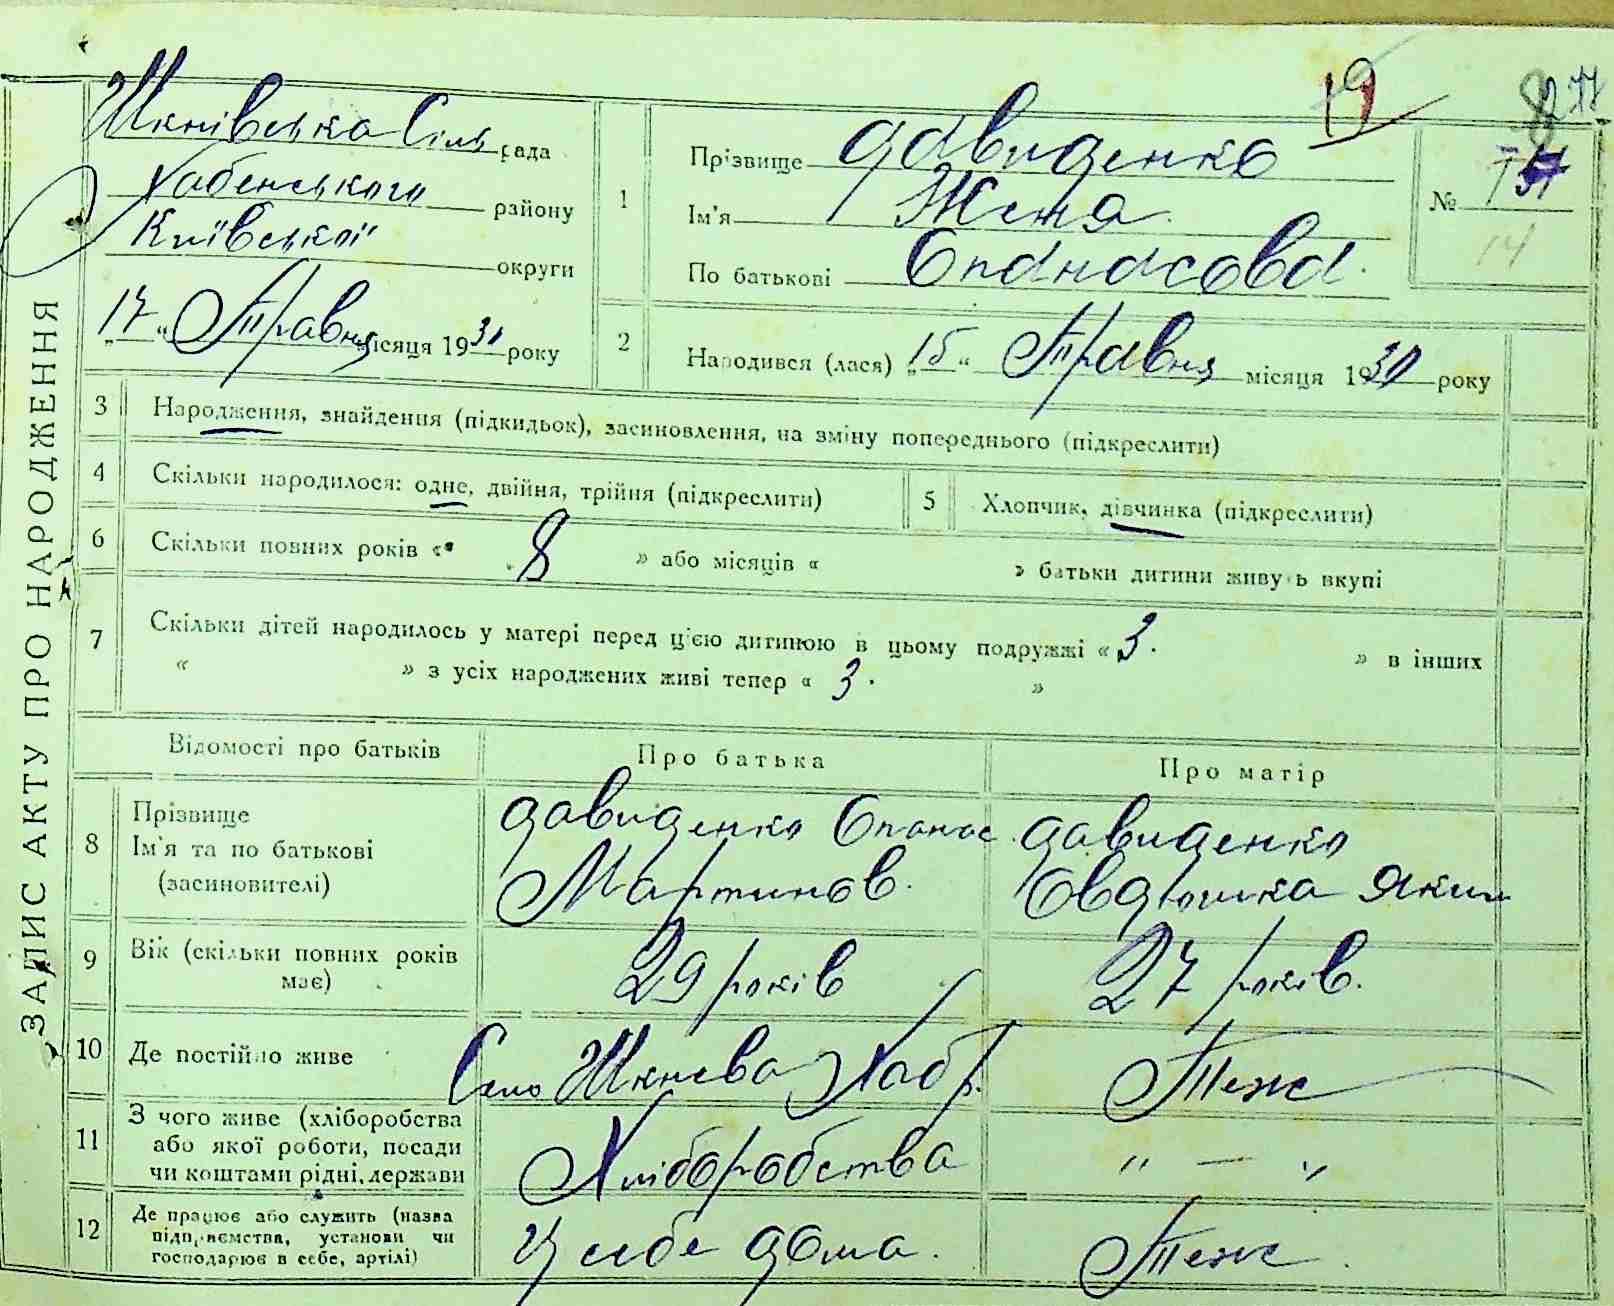 ЗАПИС АКТУ ПРО НАРОДЖЕННЯ
Шкнівська Сіль рада
Хабенського району
Київської округи
„17“ Травня місяця 1930 року
1
Прізвище Давиденко
Ім'я Женя
По батькові Опанасова
№
14
19
2
Народився (лася) „15“ Травня місяця 1930 року
3 Народження, знайдення (підкидьок), засиновлення, на зміну попереднього (підкреслити)
4 Скільки народилося: одне, двійня, трійня (підкреслити)
5 Хлопчик, дівчинка (підкреслити)
6 Скільки повних років « 8 » або місяців « » батьки дитини живуть вкупі
7 Скільки дітей народилось у матері перед цією дитиною в цьому подружжі « 3. » в інших
« » з усіх народжених живі тепер « 3. »
Відомості про батьків
Про батька
Про матір
8 Прізвище
Ім'я та по батькові
(засиновителі)
Давиденко Опанас
Мартинов.
Давиденко
Овдюшка Яким
9 Вік (скільки повних років
має)
29 років
27 років.
10 Де постійно живе
Село Шкнева Хаб р.
Теж
11 З чого живе (хліборобства
або якої роботи, посади
чи коштами рідні, держави
Хліборобства
„ — „
12 Де працює або служить (назва
підприємства, установи чи
господарює в себе, артілі)
У себе дома.
Теж.